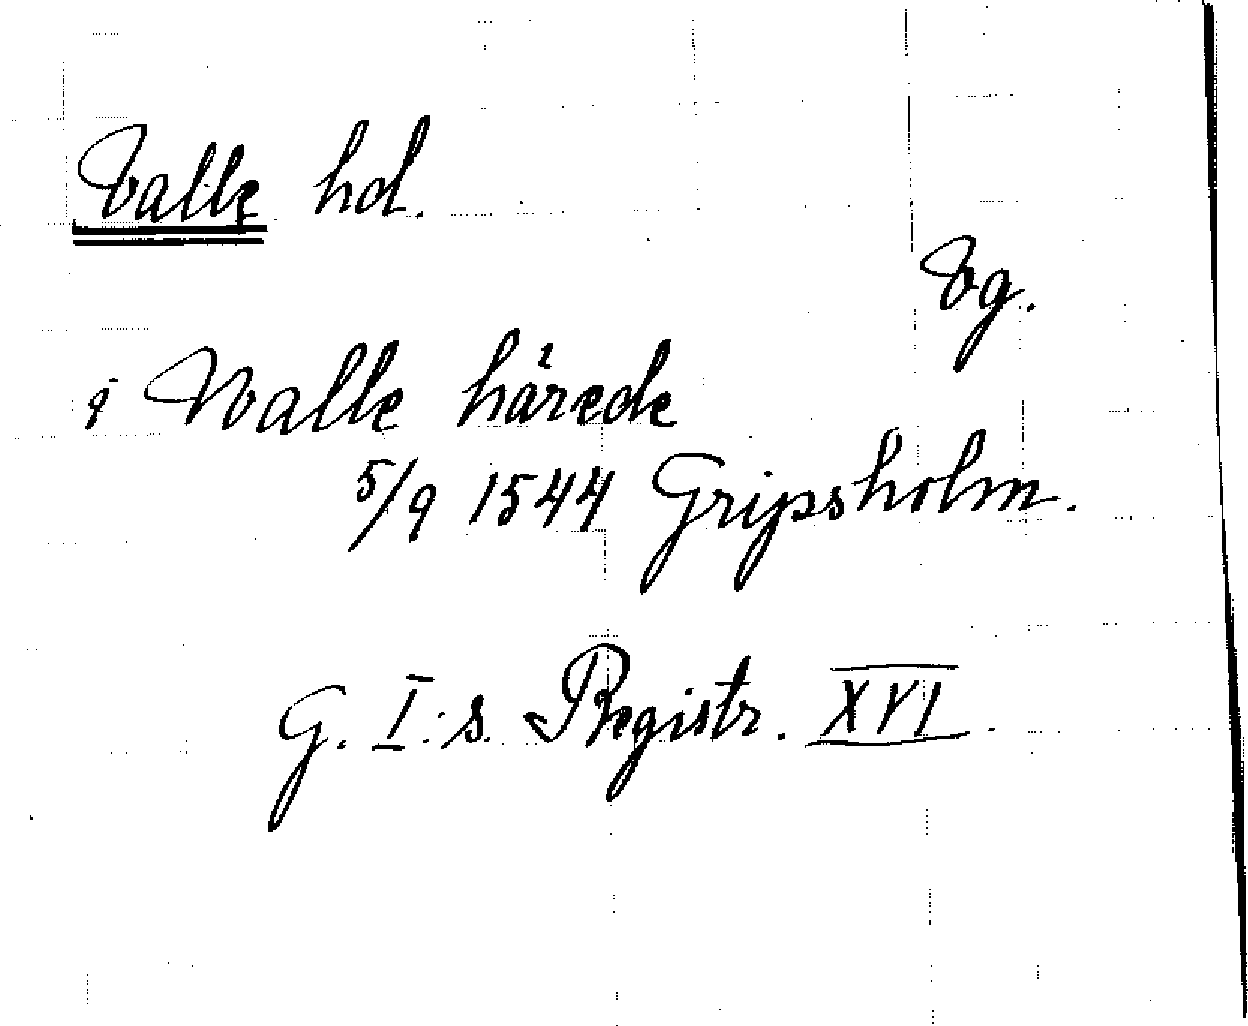 Valle hd.
Vg.
i Walle härede
5/9 1544 Gripsholm.
G. I:s. Registr. XVI.